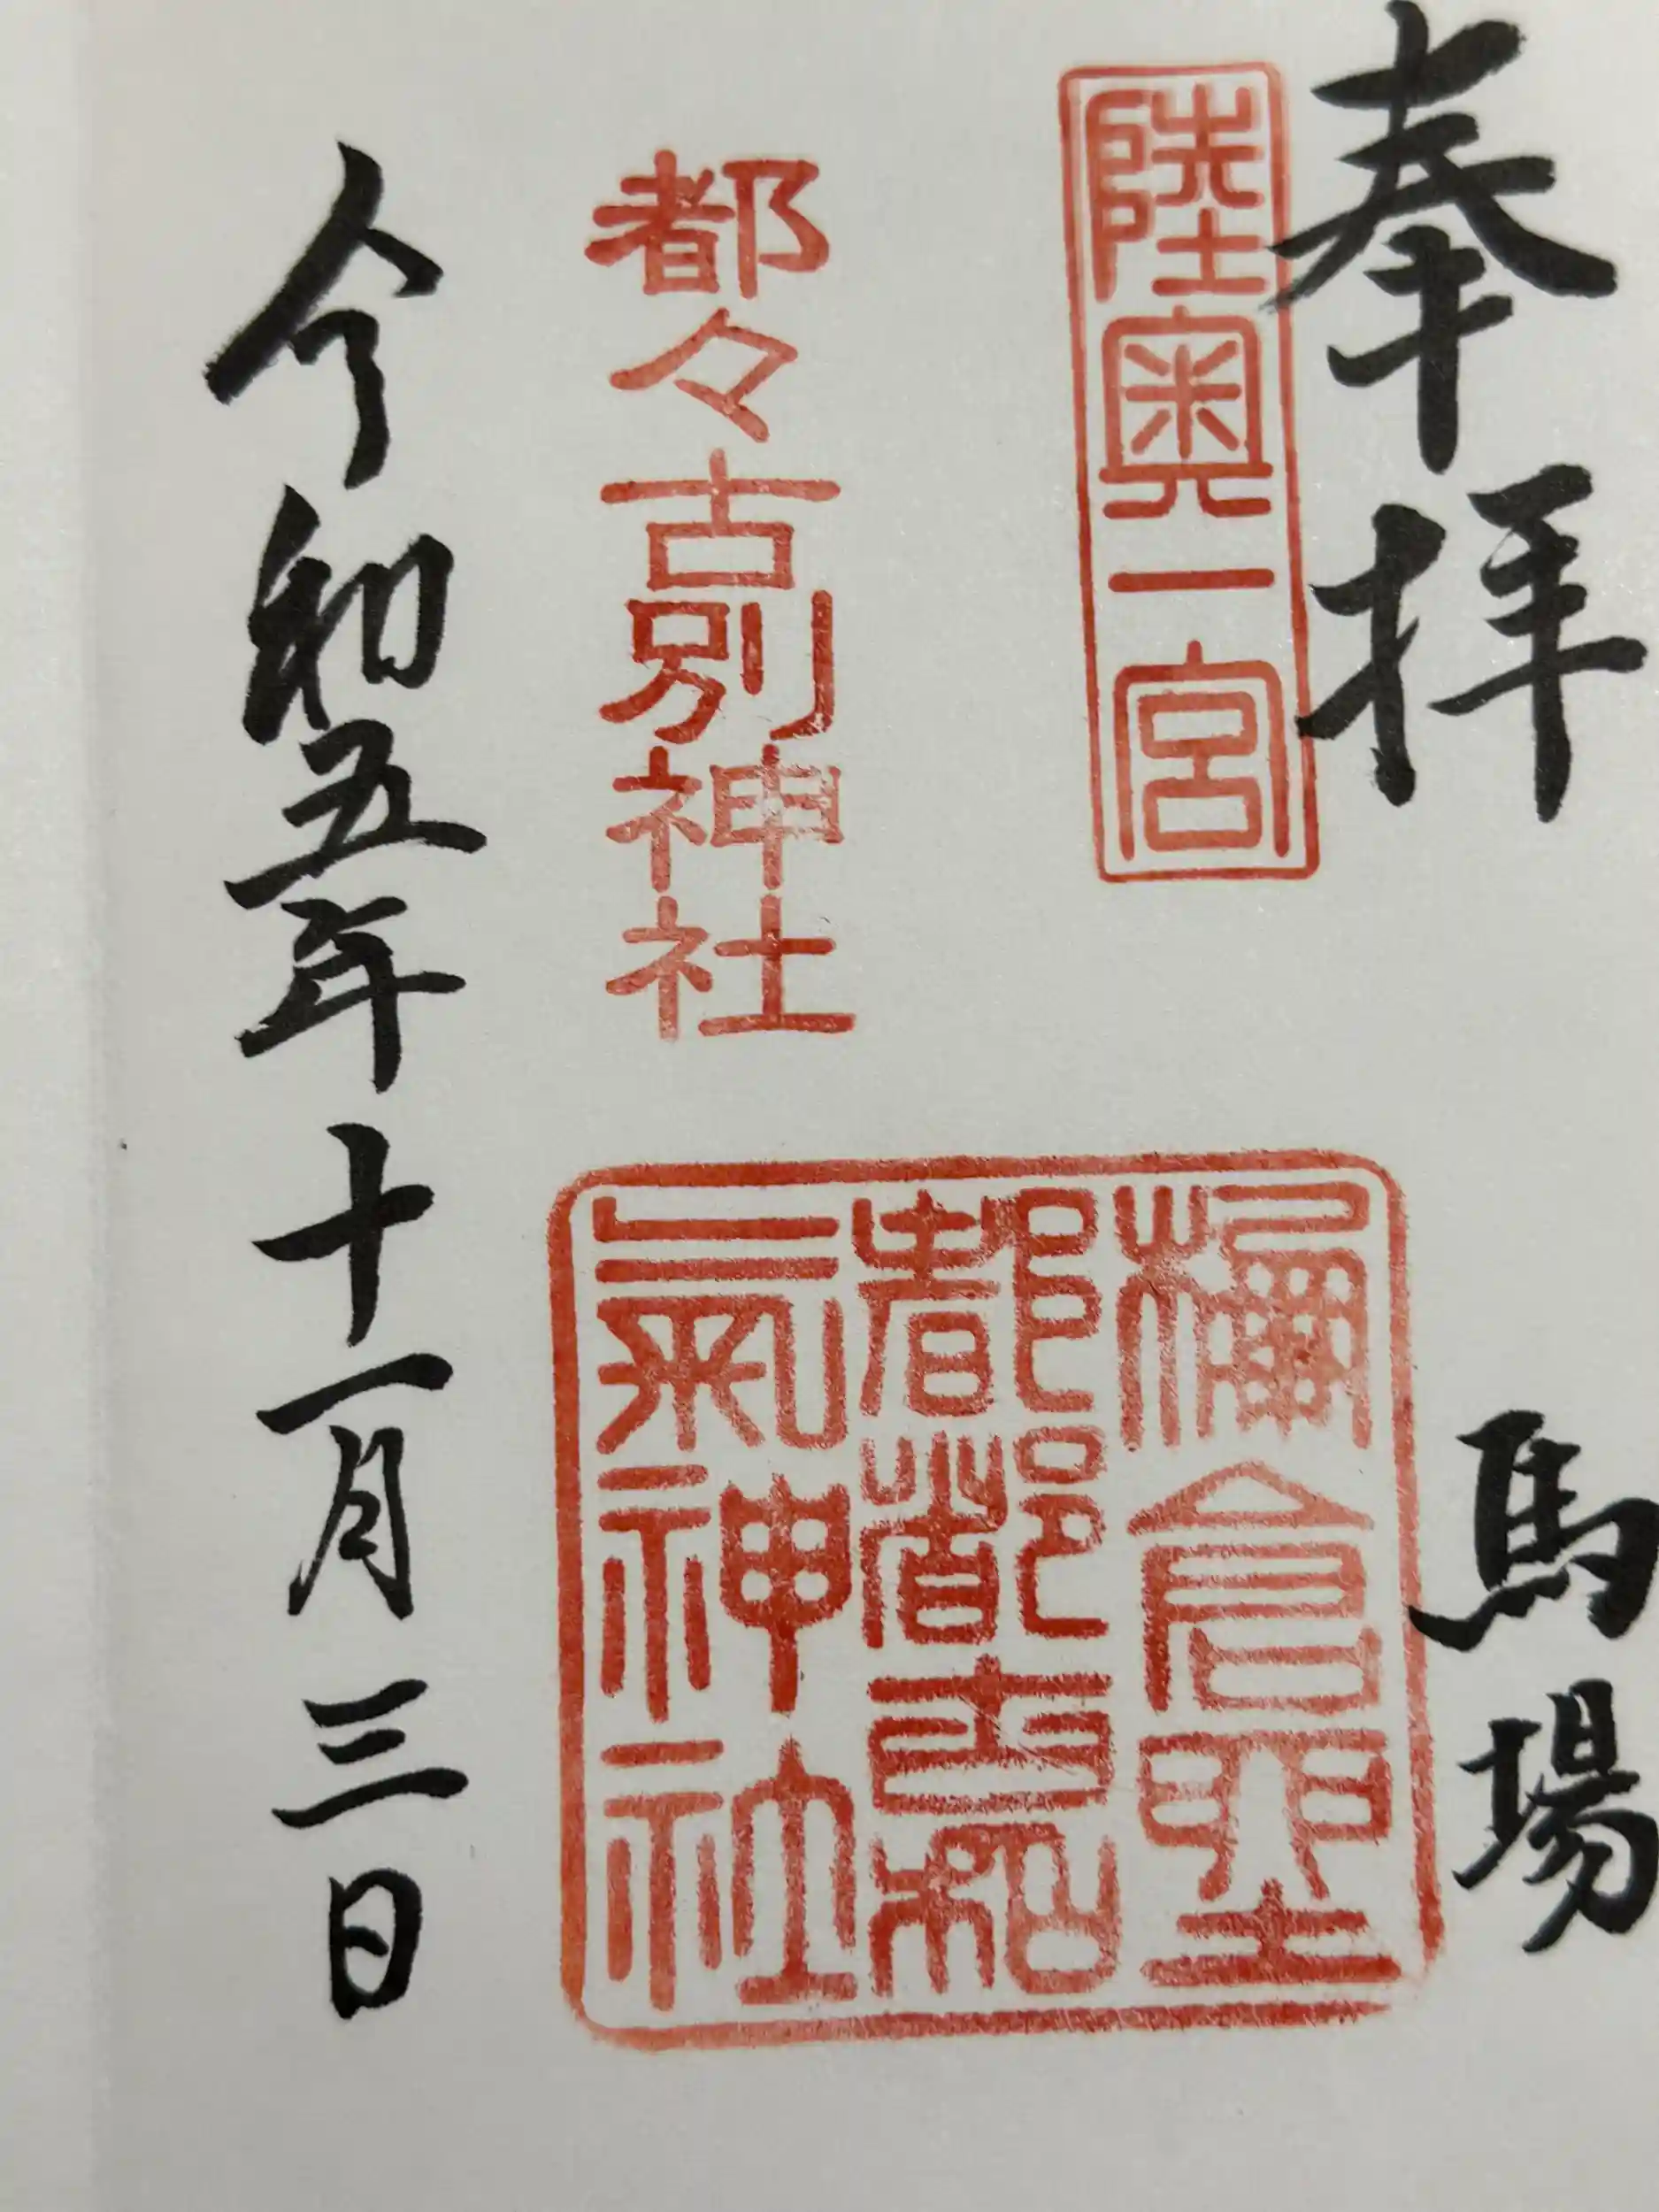 奉拝
馬場
陸奥一宮
都々古別神社
檷倉坐
都都古和
氣神社
令和五年十一月三日